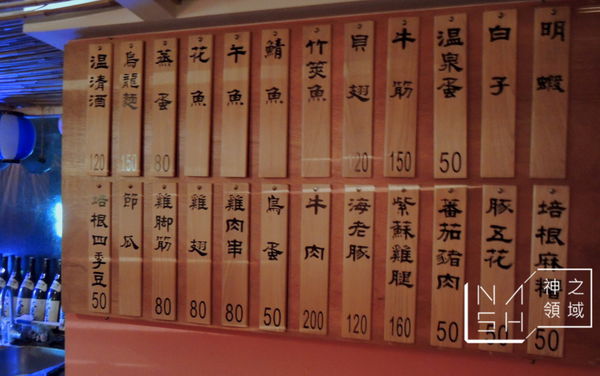 明蝦
白子
溫泉蛋
50
牛筋
150
貝翅
120
竹筴魚
鯖魚
午魚
花魚
蒸蛋
80
烏龍麵
150
溫清酒
120
培根麻糬
50
豚五花
50
蕃茄豬肉
50
紫蘇雞腿
160
海老豚
120
牛肉
200
鳥蛋
50
雞肉串
80
雞翅
80
雞腳筋
80
節瓜
培根四季豆
50
神之
領域